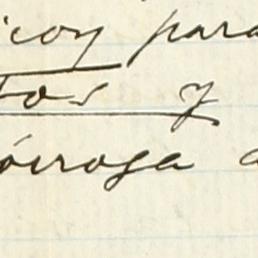 icoy para
tos y
órroga a